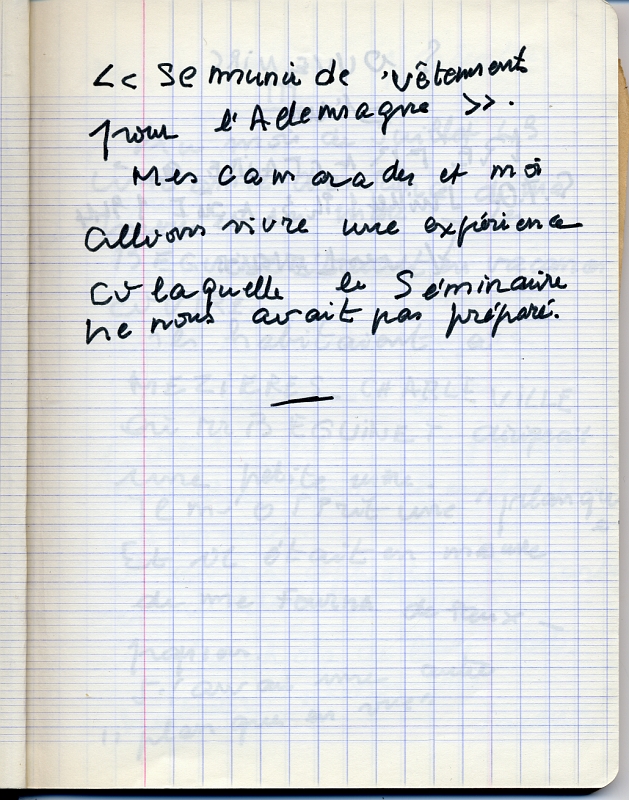 << Se munir de vêtement
pour l'Allemagne >>.
Mes camarades et moi
allions vivre une expérience
à laquelle le Séminaire
ne nous avait pas préparé.